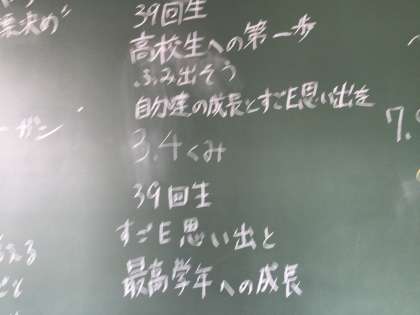 39回生
高校生への第一歩
ふみ出そう
自分達の成長とすごE思い出を
3.4くみ
39回生
すごE思い出と
最高学年への成長